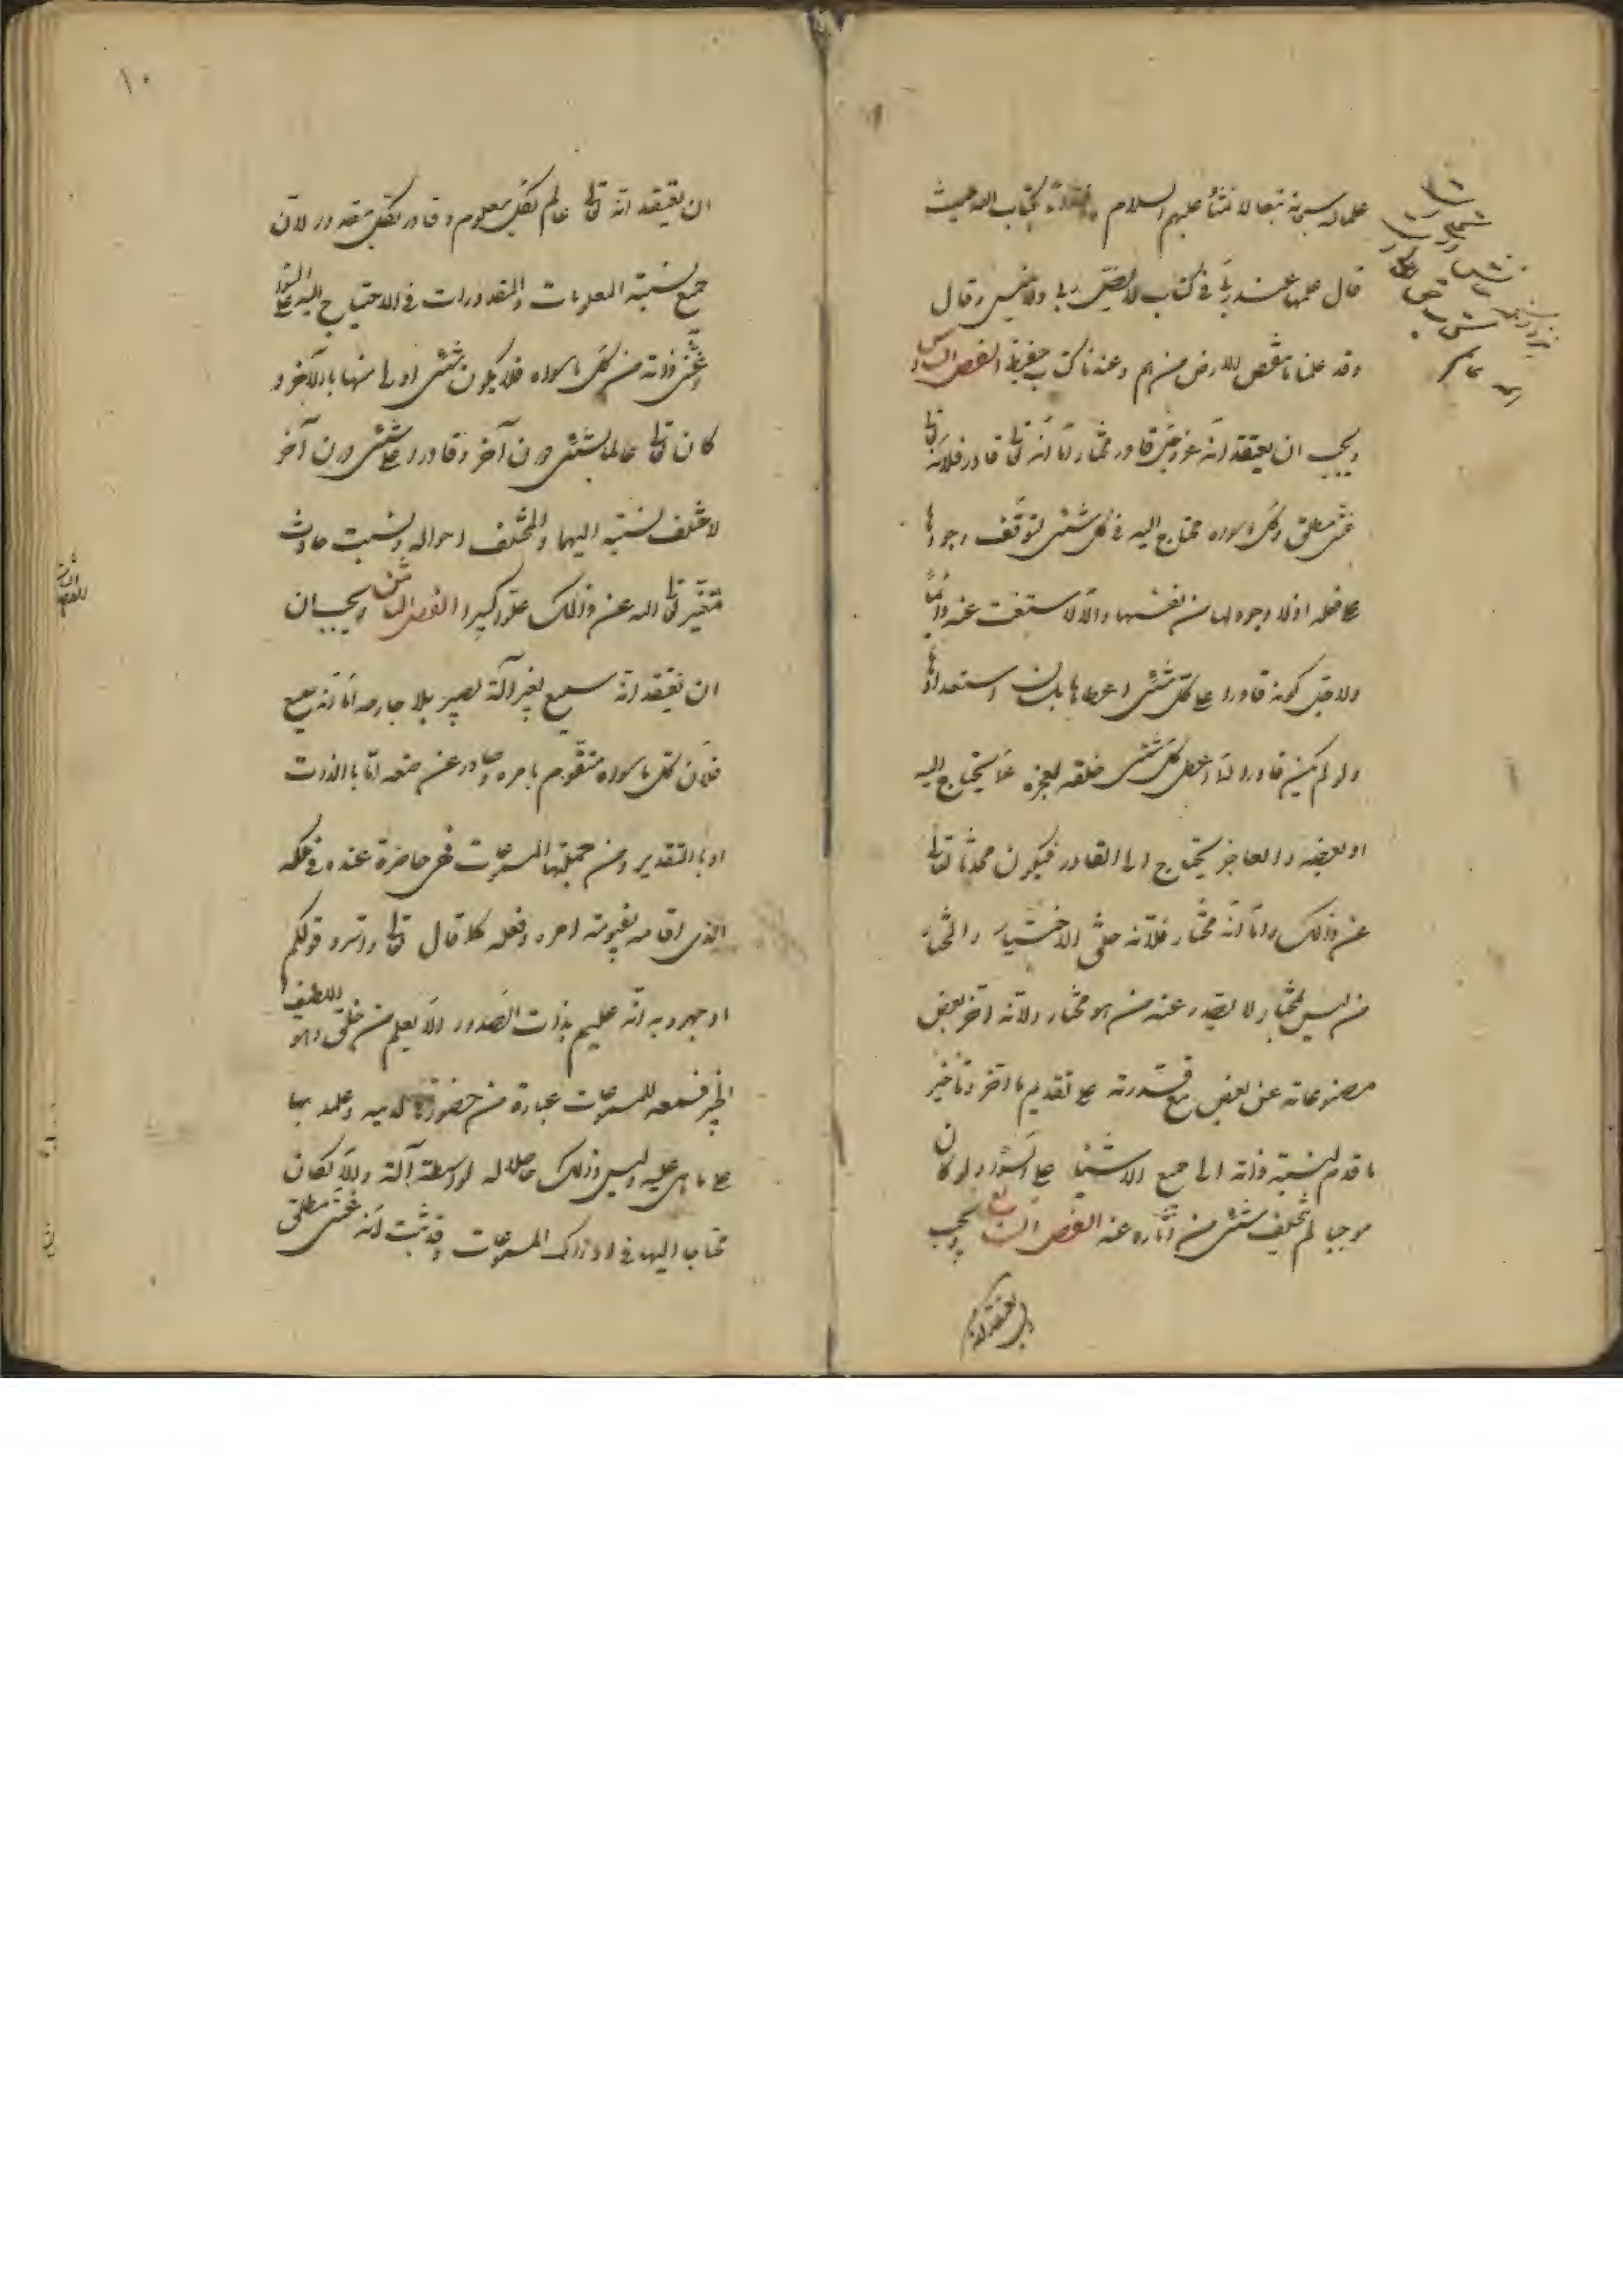 علما له سبحانه تبعا لائمتنا عليهم السلام بكتاب الله حيث
قال علمها عند ربي في كتاب لا يضل ربي ولا ينسى وقال
وقد علمنا ما تنقص الارض منهم وعندنا كتاب حفيظ الفصل السادس
ويجب ان يعتقد انه عز وجل قادر مختار اما انه تعالى قادر فلانه تعالى
غني مطلق وكل ما سواه محتاج اليه في كل شئ لتوقف وجودها
على فعله اذ لا وجود لها من نفسها والا لاستغنت عنه دائما
ولاجل كونه قادرا على كل شئ اعطاها بلسان استعدادها
ولو لم يكن قادرا لما اعطى كل شئ خلقه لعجزه عما يحتاج اليه
او بعضه والعاجز يحتاج الى القادر فيكون محدثا تعالى
عن ذلك واما انه مختار فلانه خلق الاختيار والمختار
من ليس بمختار لا يصدر عنه من هو مختار ولانه اخر بعض
مصنوعاته عن بعض مع قدرته على تقديم ما اخر وتأخير
ما قدم لنسبة ذاته الى جميع الاشياء على السواء ولو كان
موجبا لم يتخلف شئ من آثاره عنه الفصل السابع ويجب
ان يعتقد انه
١٠
ان يعتقد انه تعالى عالم بكل معلوم وقادر بكل مقدور لان
جميع نسبة المعلومات والمقدورات في الاحتياج اليه على السواء
وغنى ذاته من كل ما سواه فلا يكون شئ اولى منها بالآخر و
كان تعالى عالما بشئ دون آخر وقادرا على شئ دون آخر
لاختلف نسبته اليها والمختلف احواله ونسبته حادث
متغير تعالى الله عن ذلك علوا كبيرا الفصل الثامن ويجب ان
ان يعتقد انه سميع بغير آلة بصير بلا جارحه اما انه سميع
فلان كل ما سواه متقوم بامره وصادر عن صنعه اما بالذات
او بالتقدير ومن جملتها المسموعات فهى حاضرة عنده في ملكه
الذي اقامه بقيومية امره وفعله كما قال تعالى واسروا قولكم
او اجهروا به انه عليم بذات الصدور الا يعلم من خلق وهو اللطيف
الخبير فسمعه للمسموعات عبارة من حضورها لديه وعلمه بها
على ما هي عليه وليس ذلك حاصلا له بواسطة آلة والا لكان
محتاجا اليها في ادراك المسموعات وقد ثبت انه غني مطلق